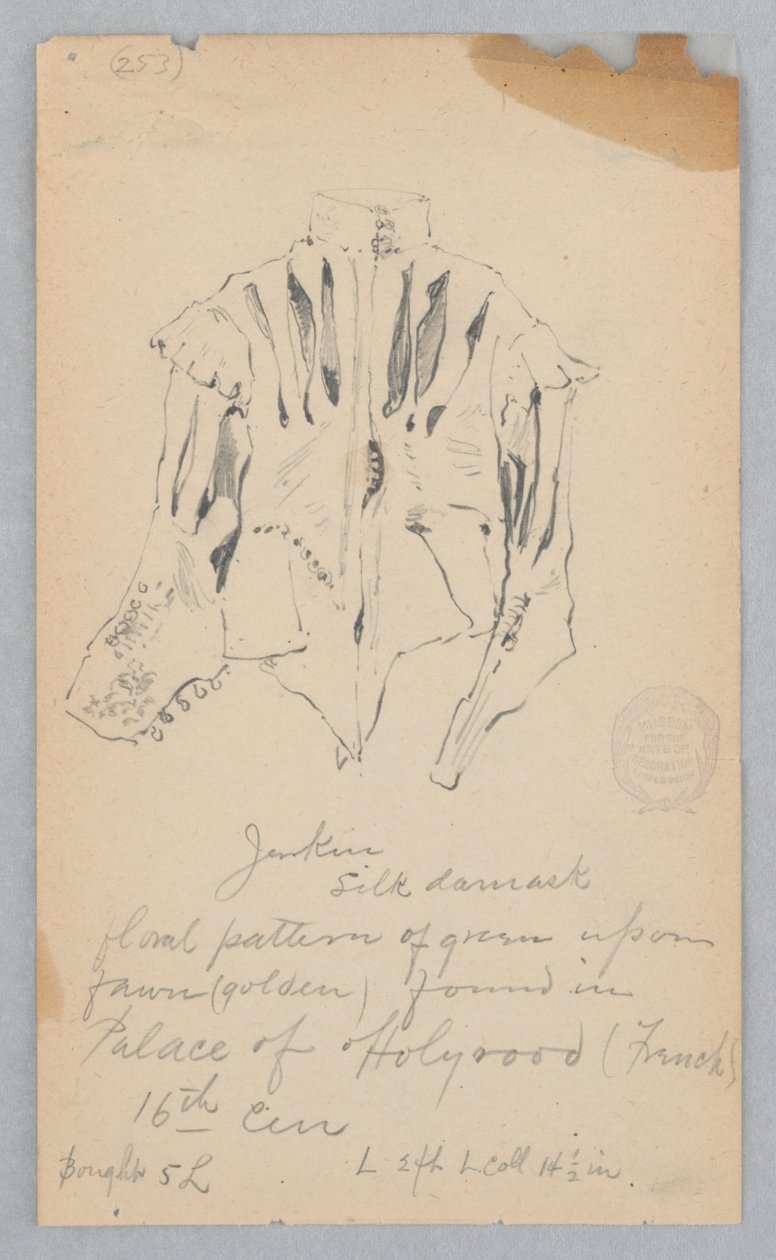 (253)
MUSEUM
FOR THE
ARTS OF
DECORATION
COOPER UNION
Jerkin
Silk damask
floral pattern of green upon
fawn (golden) found in
Palace of Holyrood (French)
16th Cen
Bought 5 L
L 2 ft L coll 14 1/2 in